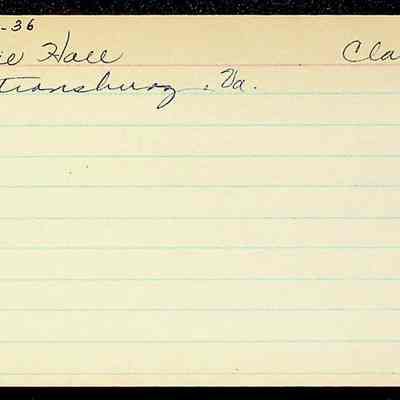 -36
ie Hall Cla
tiansburg, Va.